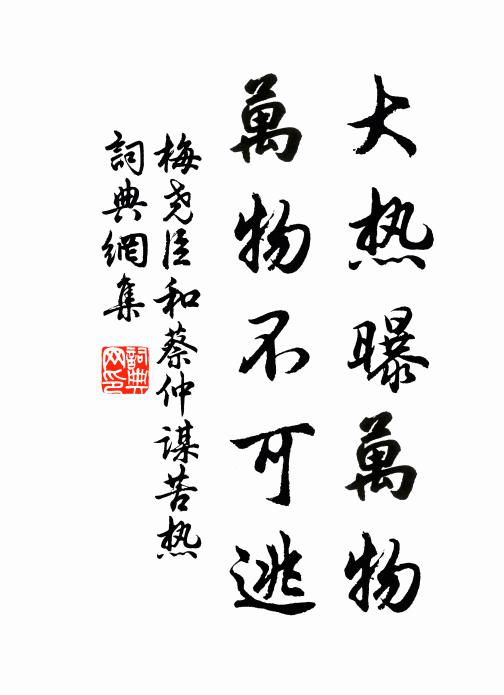 大热曝萬物
萬物不可逃
梅尧臣和蔡仲谋苦热
詞典網集
詞典网印